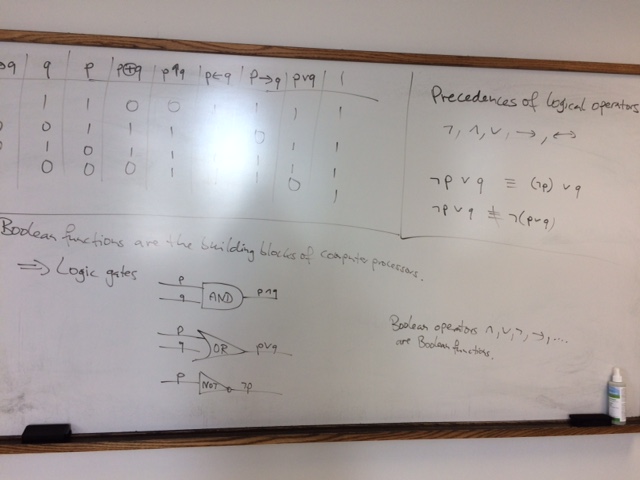 →q | q | p | p⊕q | p↑q | p←q | p→q | p∨q | 1
1 1 0 0 1 1 1
0 0 1 1 1 0 1
1 0 1 1 1 1
0 0 0 1 1 0 1
Precedences of Logical operators
¬, ∧, ∨, →, ↔
¬p ∨ q ≡ (¬p) ∨ q
¬p ∨ q ≢ ¬(p∨q)
Boolean functions are the building blocks of computer processors.
⇒ Logic gates
p
q AND p∧q
p
q OR p∨q
p NOT ¬p
Boolean operators ∧, ∨, ¬, →, ....
are Boolean functions.